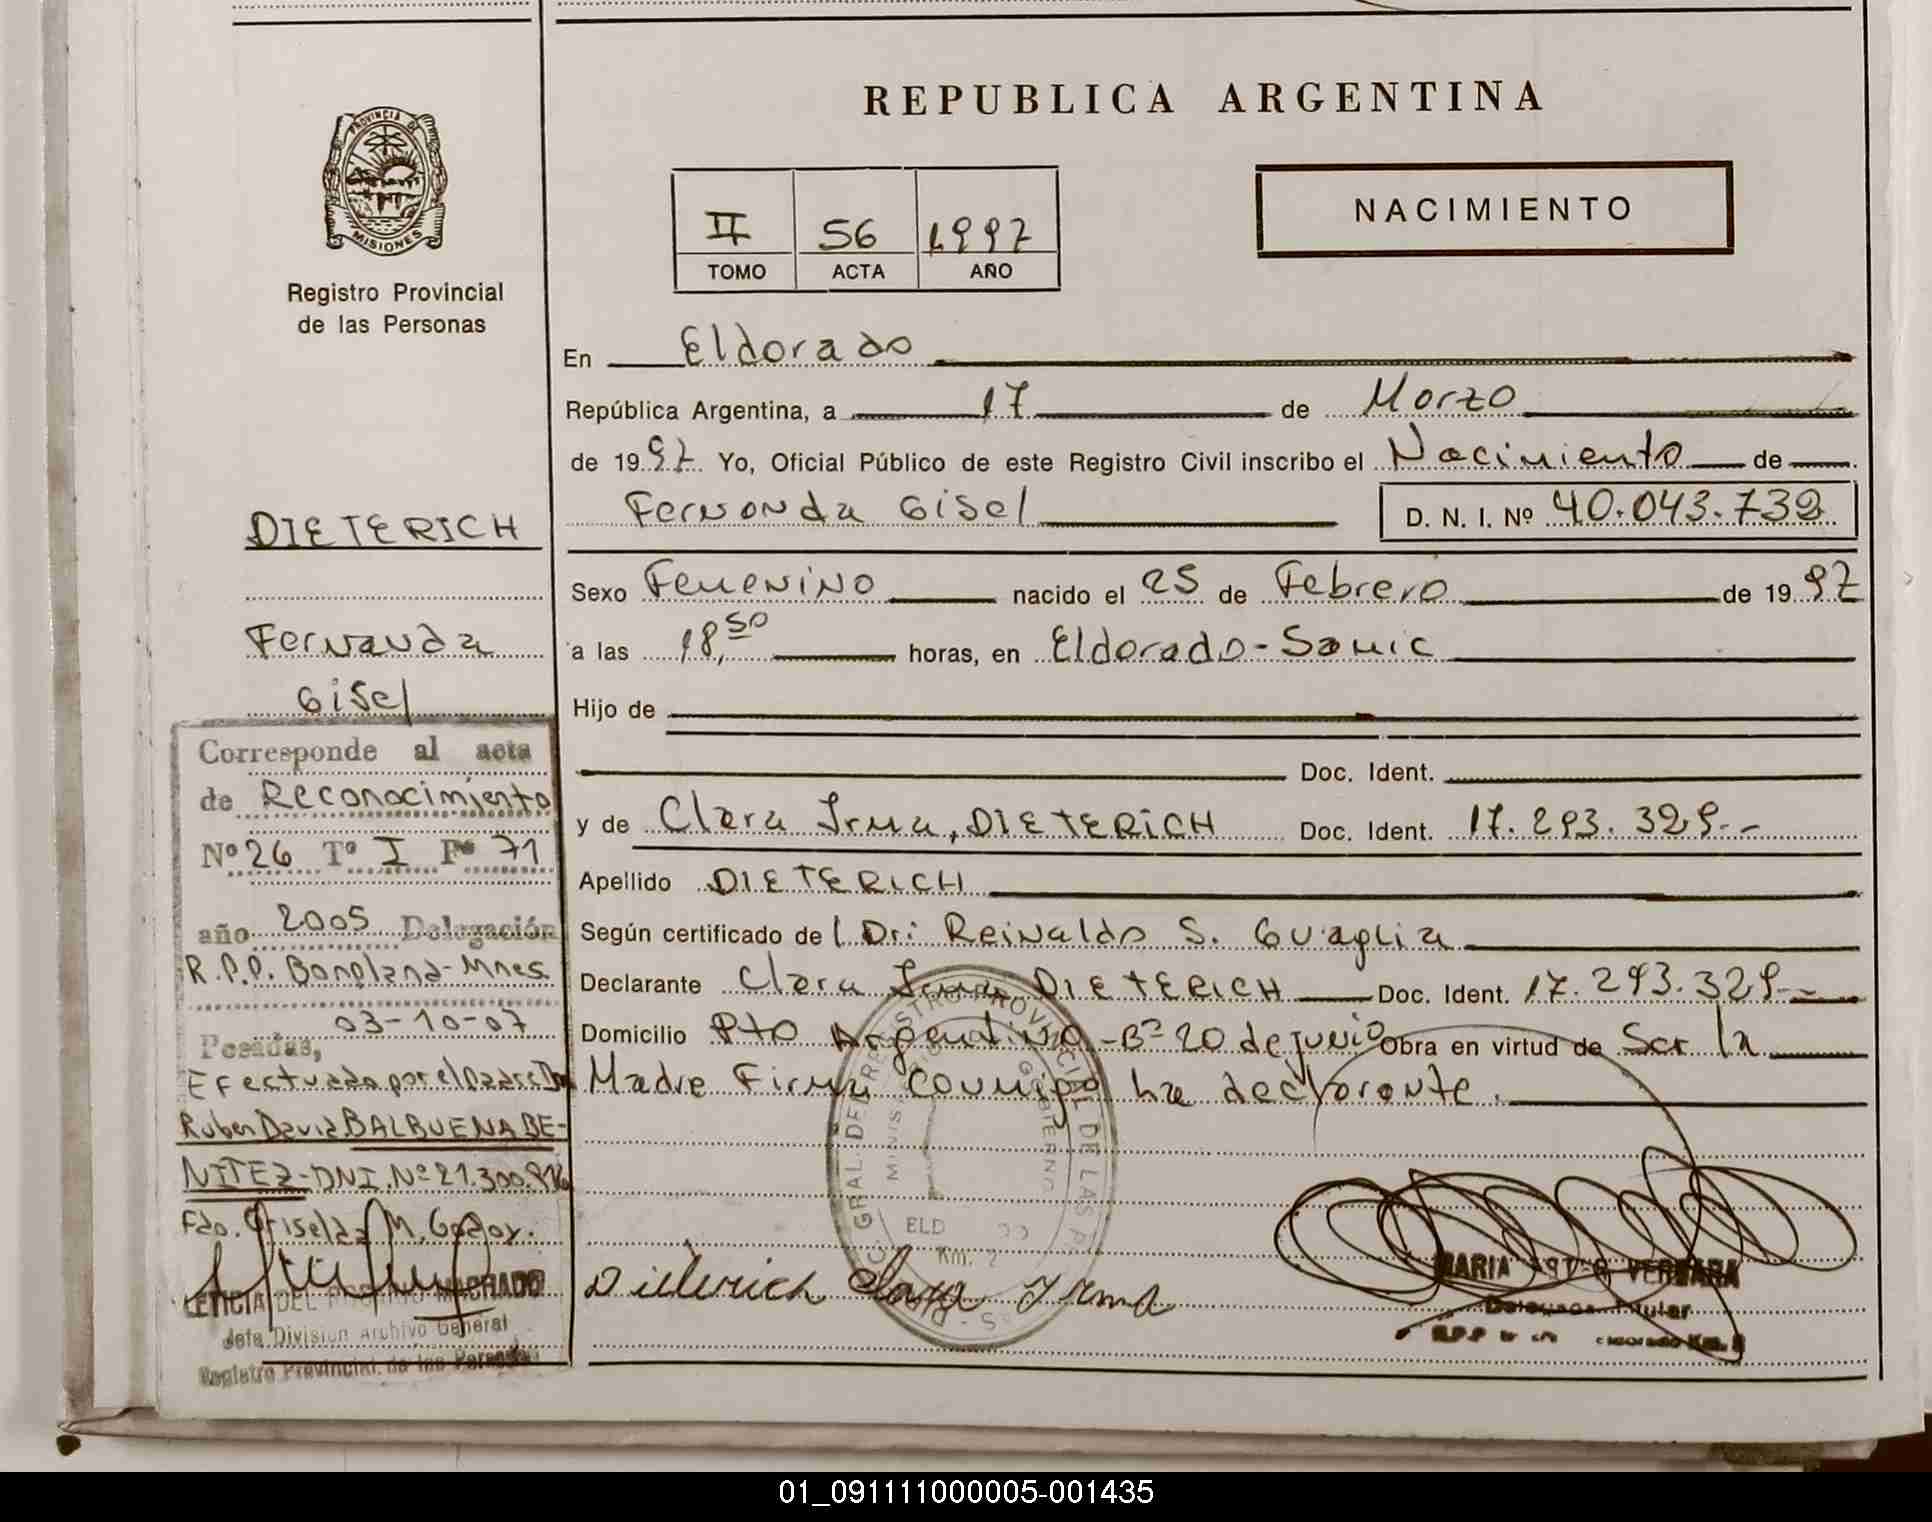 REPUBLICA ARGENTINA
PROVINCIA DE
MISIONES
Registro Provincial
de las Personas
II 56 1997
TOMO ACTA AÑO
NACIMIENTO
DIETERICH
Fernanda
Gisel
Corresponde al acta
de Reconocimiento
Nº 26 Tº I Fº 71
año 2005 Delegación
R.P.P. Bonpland-Mnes.
Posadas, 03-10-07
Efectuada por el padre Dn
Ruben David BALBUENA BE-
NITEZ-DNI.Nº 21.300.916
Fdo. Griselda M. Godoy.
LETICIA DEL ROSARIO MACHADO
Jefe División Archivo General
Registro Provincial de las Personas
En Eldorado
República Argentina, a 17 de Marzo
de 1997 Yo, Oficial Público de este Registro Civil inscribo el Nacimiento de
Fernanda Gisel D. N. I. Nº 40.043.739
Sexo Femenino nacido el 25 de Febrero de 1997
a las 18,50 horas, en Eldorado-Samic
Hijo de
Doc. Ident.
y de Clara Irma, DIETERICH Doc. Ident. 17.293.329.-
Apellido DIETERICH
Según certificado de l Dr: Reinaldo S. Guaglia
Declarante Clara Irma DIETERICH Doc. Ident. 17.293.329.-
Domicilio Pto Argentino-Bº 20 de junio Obra en virtud de Ser la
Madre Firma conmigo la declarante.
ELD
Km. 2
Dieterich Clara Irma
MARIA VERGARA
Delegada Titular
01_091111000005-001435